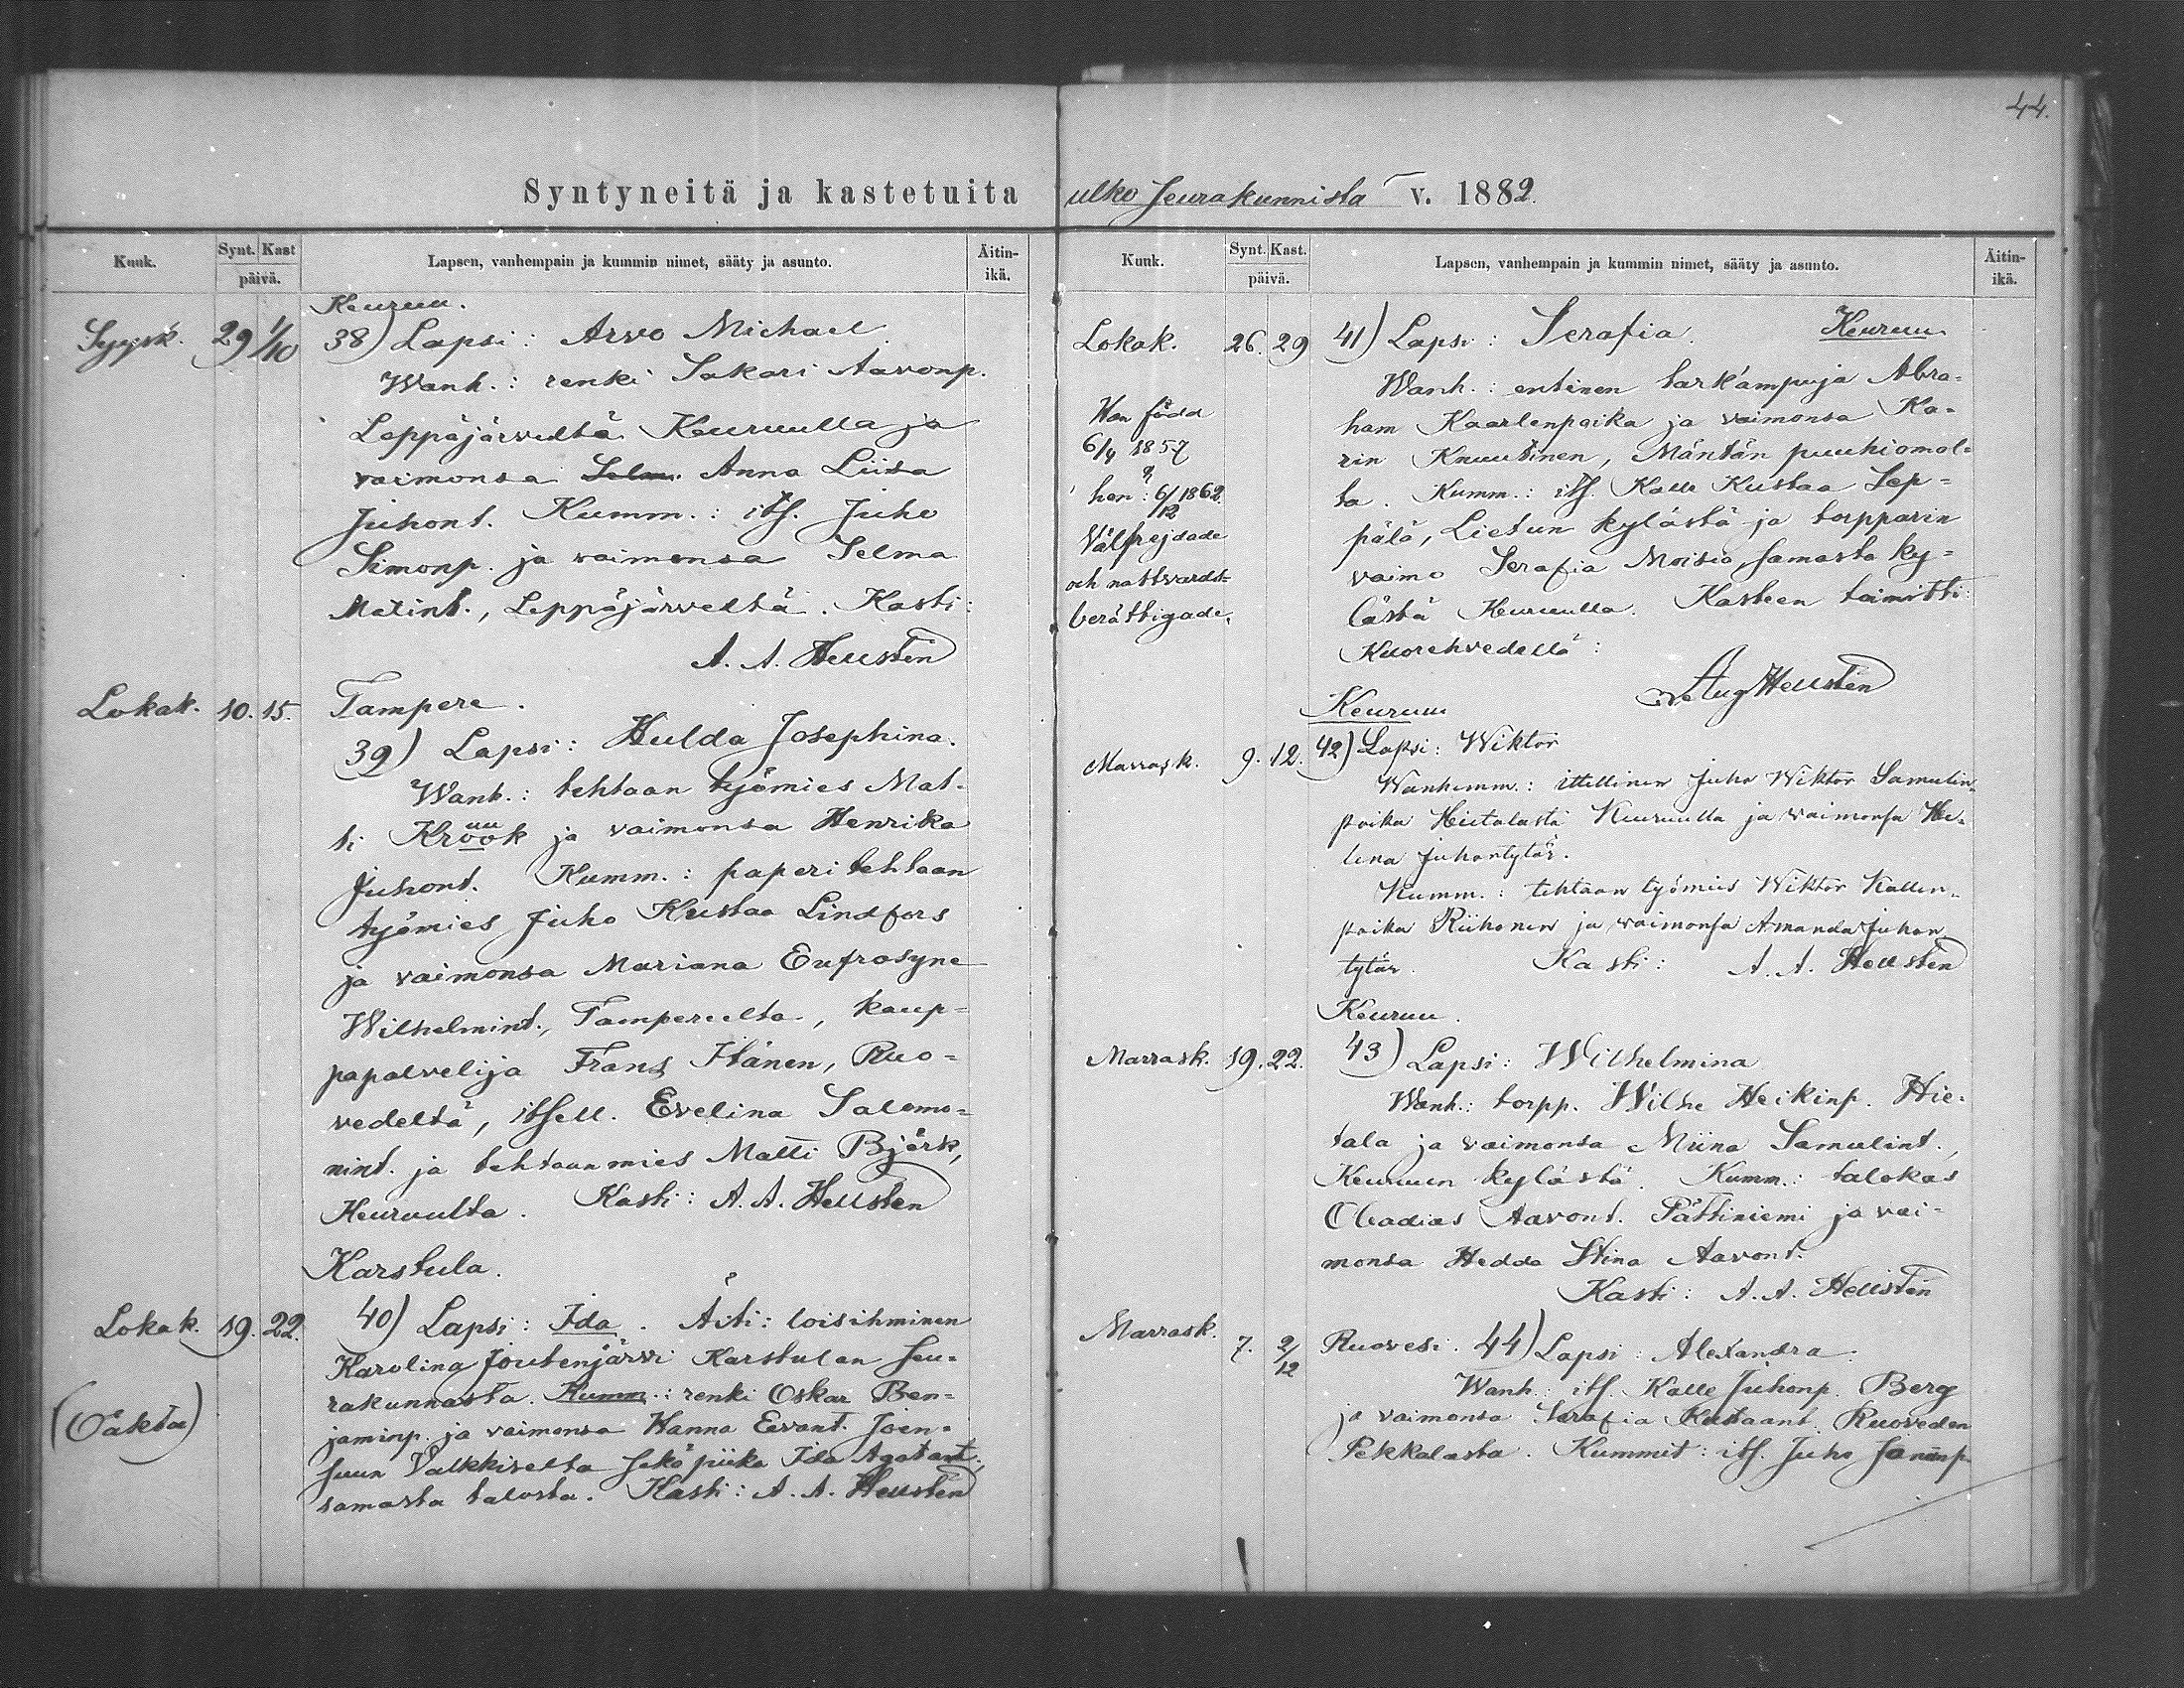 44.
Syntyneitä ja kastetuita ulko seurakunnista v. 1882.
Kuuk. Synt. Kast päivä. Lapsen, vanhempain ja kummin nimet, sääty ja asunto. Äitin-ikä.
Keuruu.
Syysk. 29 1/10 38) Lapsi: Arvo Michael.
Wanh.: renki Sakari Aavonp.
Leppäjärveltä Keuruulla ja
vaimonsa Selm. Anna Liisa
Juhont. Kumm.: its. Juho
Simonp. ja vaimonsa Selma
Matint., Leppäjärveltä. Kasti:
A. A. Hellstén
Lokak. 10. 15. Tampere.
39) Lapsi: Hulda Josephina.
Wanh.: tehtaan työmies Mat-
ti Kröök ja vaimonsa Henrika
uu
Juhont. Kumm.: paperitehtaan
työmies Juho Kustaa Lindfors
ja vaimonsa Mariana Eufrosyne
Wilhelmint., Tampereelta, kaup-
papalvelija Frans Itänen, Ruo-
vedeltä, itsell. Evelina Salomo-
nint. ja tehtaanmies Matti Björk,
Keuruulta. Kasti: A. A. Hellsten
Karstula.
Lokak. 19. 22. 40) Lapsi: Ida. Äiti: loisihminen
Karolina Joutenjärvi Karstulan seu-
rakunnasta. Kumm.: renki Oskar Ben-
(Oäkta)
jaminp. ja vaimonsa Hanna Eevant. Joen-
suun Valkkiselta sekä piika Ida Agatant.,
samasta talosta. Kasti: A. A. Hellstén
Kuuk. Synt. Kast. päivä. Lapsen, vanhempain ja kummin nimet, sääty ja asunto. Äitin-ikä.
Lokak. 26. 29 41) Lapsi: Serafia. Keuruu
Wanh.: entinen tark'ampuja Abra-
ham Kaarlenpoika ja vaimonsa Ka-
rin Knuutinen, Mäntän puuhiomol-
ta. Kumm.: its. Kalle Kustaa Sep-
pälä, Lietun kylästä ja torpparin
vaimo Serafia Moisio, samasta ky-
lästä Keuruulla. Kasteen toimitti
Kuorehvedellä:
Aug Hellstén
Han född
6/4 1857
hon: 6/12 1862
Välfrejdade
och nattvards-
berättigade.
Keuruu
Marrask. 9. 12. 42) Lapsi: Wiktor
Wanhemm.: itellinen Juho Wiktor Samulin-
poika Hietalasta Keuruulla ja vaimonsa He-
lena Juhontytär.
Kumm.: tehtaan työmies Wiktor Kallen-
poika Riihonen ja vaimonsa Amanda Juhon
tytär. Kasti: A. A. Hellstén
Keuruu.
Marrask. 19. 22. 43) Lapsi: Wilhelmina
Wanh.: torpp. Wilhe Heikinp. Hie-
tala ja vaimonsa Miina Samulint.,
Keuruun kylästä. Kumm.: talokas
Obadias Aavont. Pättiniemi ja vai-
monsa Hedda Stina Aavont.
Kasti: A. A. Hellstén
Marrask. 7. 2/12 Ruovesi. 44) Lapsi: Alexandra.
Wanh.: its. Kalle Juhonp. Berg
ja vaimonsa Serafia Kustaant. Ruoveden
Pekkalasta. Kummit: its. Juho